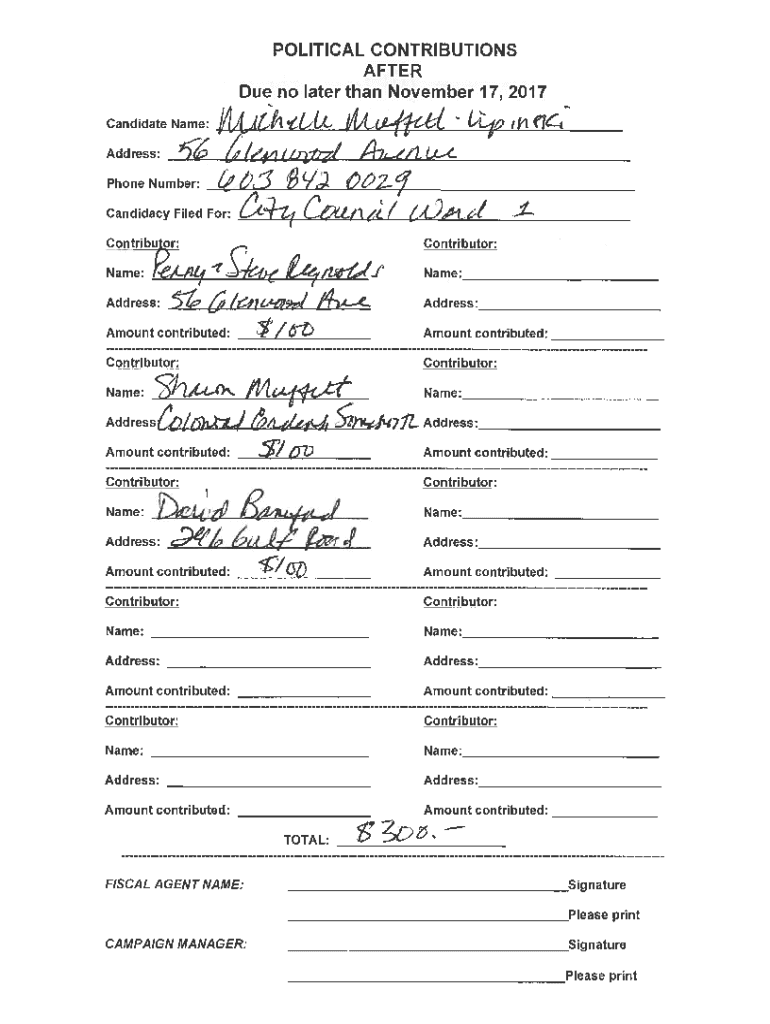 POLITICAL CONTRIBUTIONS
AFTER
Due no later than November 17, 2017
Candidate Name: Michelle Muffett-Lipinski
Address: 56 Glenwood Avenue
Phone Number: 603 842 0029
Candidacy Filed For: City Council Ward 1
Contributor: Contributor:
Name: Penny & Steve Reynolds Name:
Address: 56 Glenwood Ave Address:
Amount contributed: $100 Amount contributed:
Contributor: Contributor:
Name: Shawn Muffett Name:
Address: Colonial Gardens Address:
Amount contributed: $100 Amount contributed:
Contributor: Contributor:
Name: David Name:
Address: 296 Gulf Road Address:
Amount contributed: $100 Amount contributed:
Contributor: Contributor:
Name: Name:
Address: Address:
Amount contributed: Amount contributed:
Contributor: Contributor:
Name: Name:
Address: Address:
Amount contributed: Amount contributed:
TOTAL: $300.-
FISCAL AGENT NAME: Signature
Please print
CAMPAIGN MANAGER: Signature
Please print